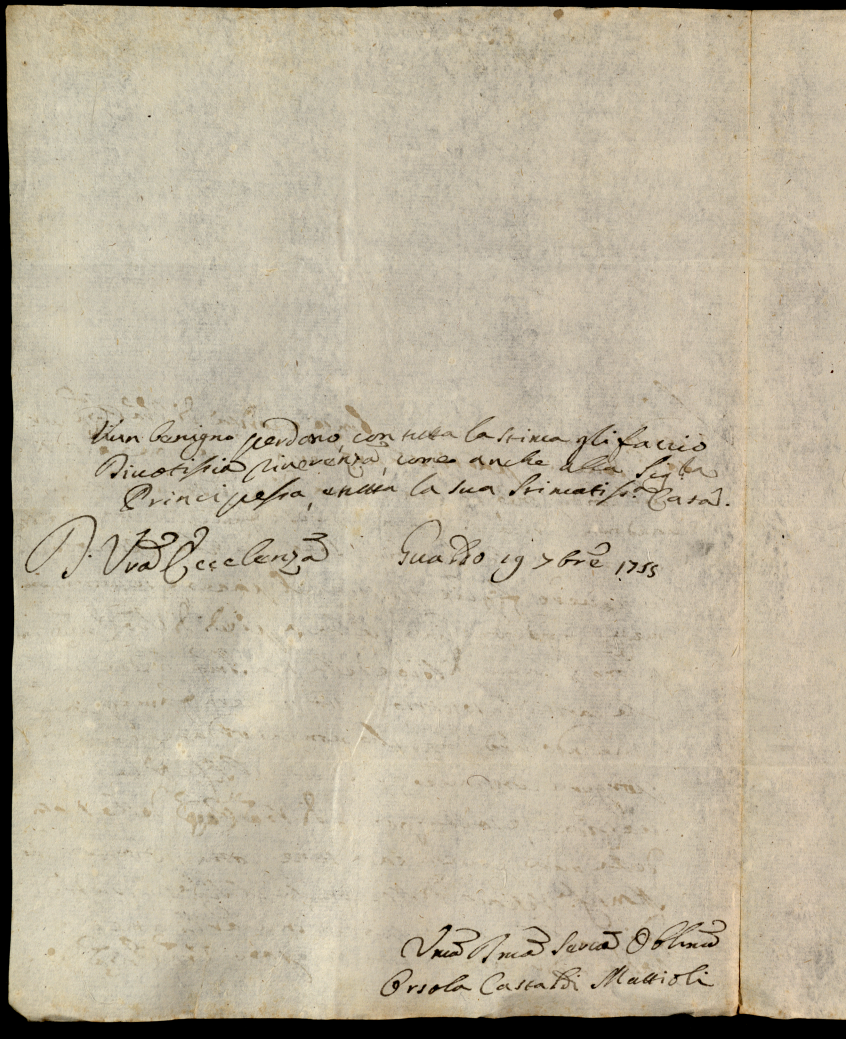 d'un benigno perdono, con tutta la stima gli faccio
Divotissia riverenza, come anche alla Sig.ra
Principessa, e tutta la sua Stimatiss.a Casa.
D. Vra Eccelenza Gualdo 19 7bre 1755
Vma Dma Serva Obblma
Orsola Castaldi Mattioli